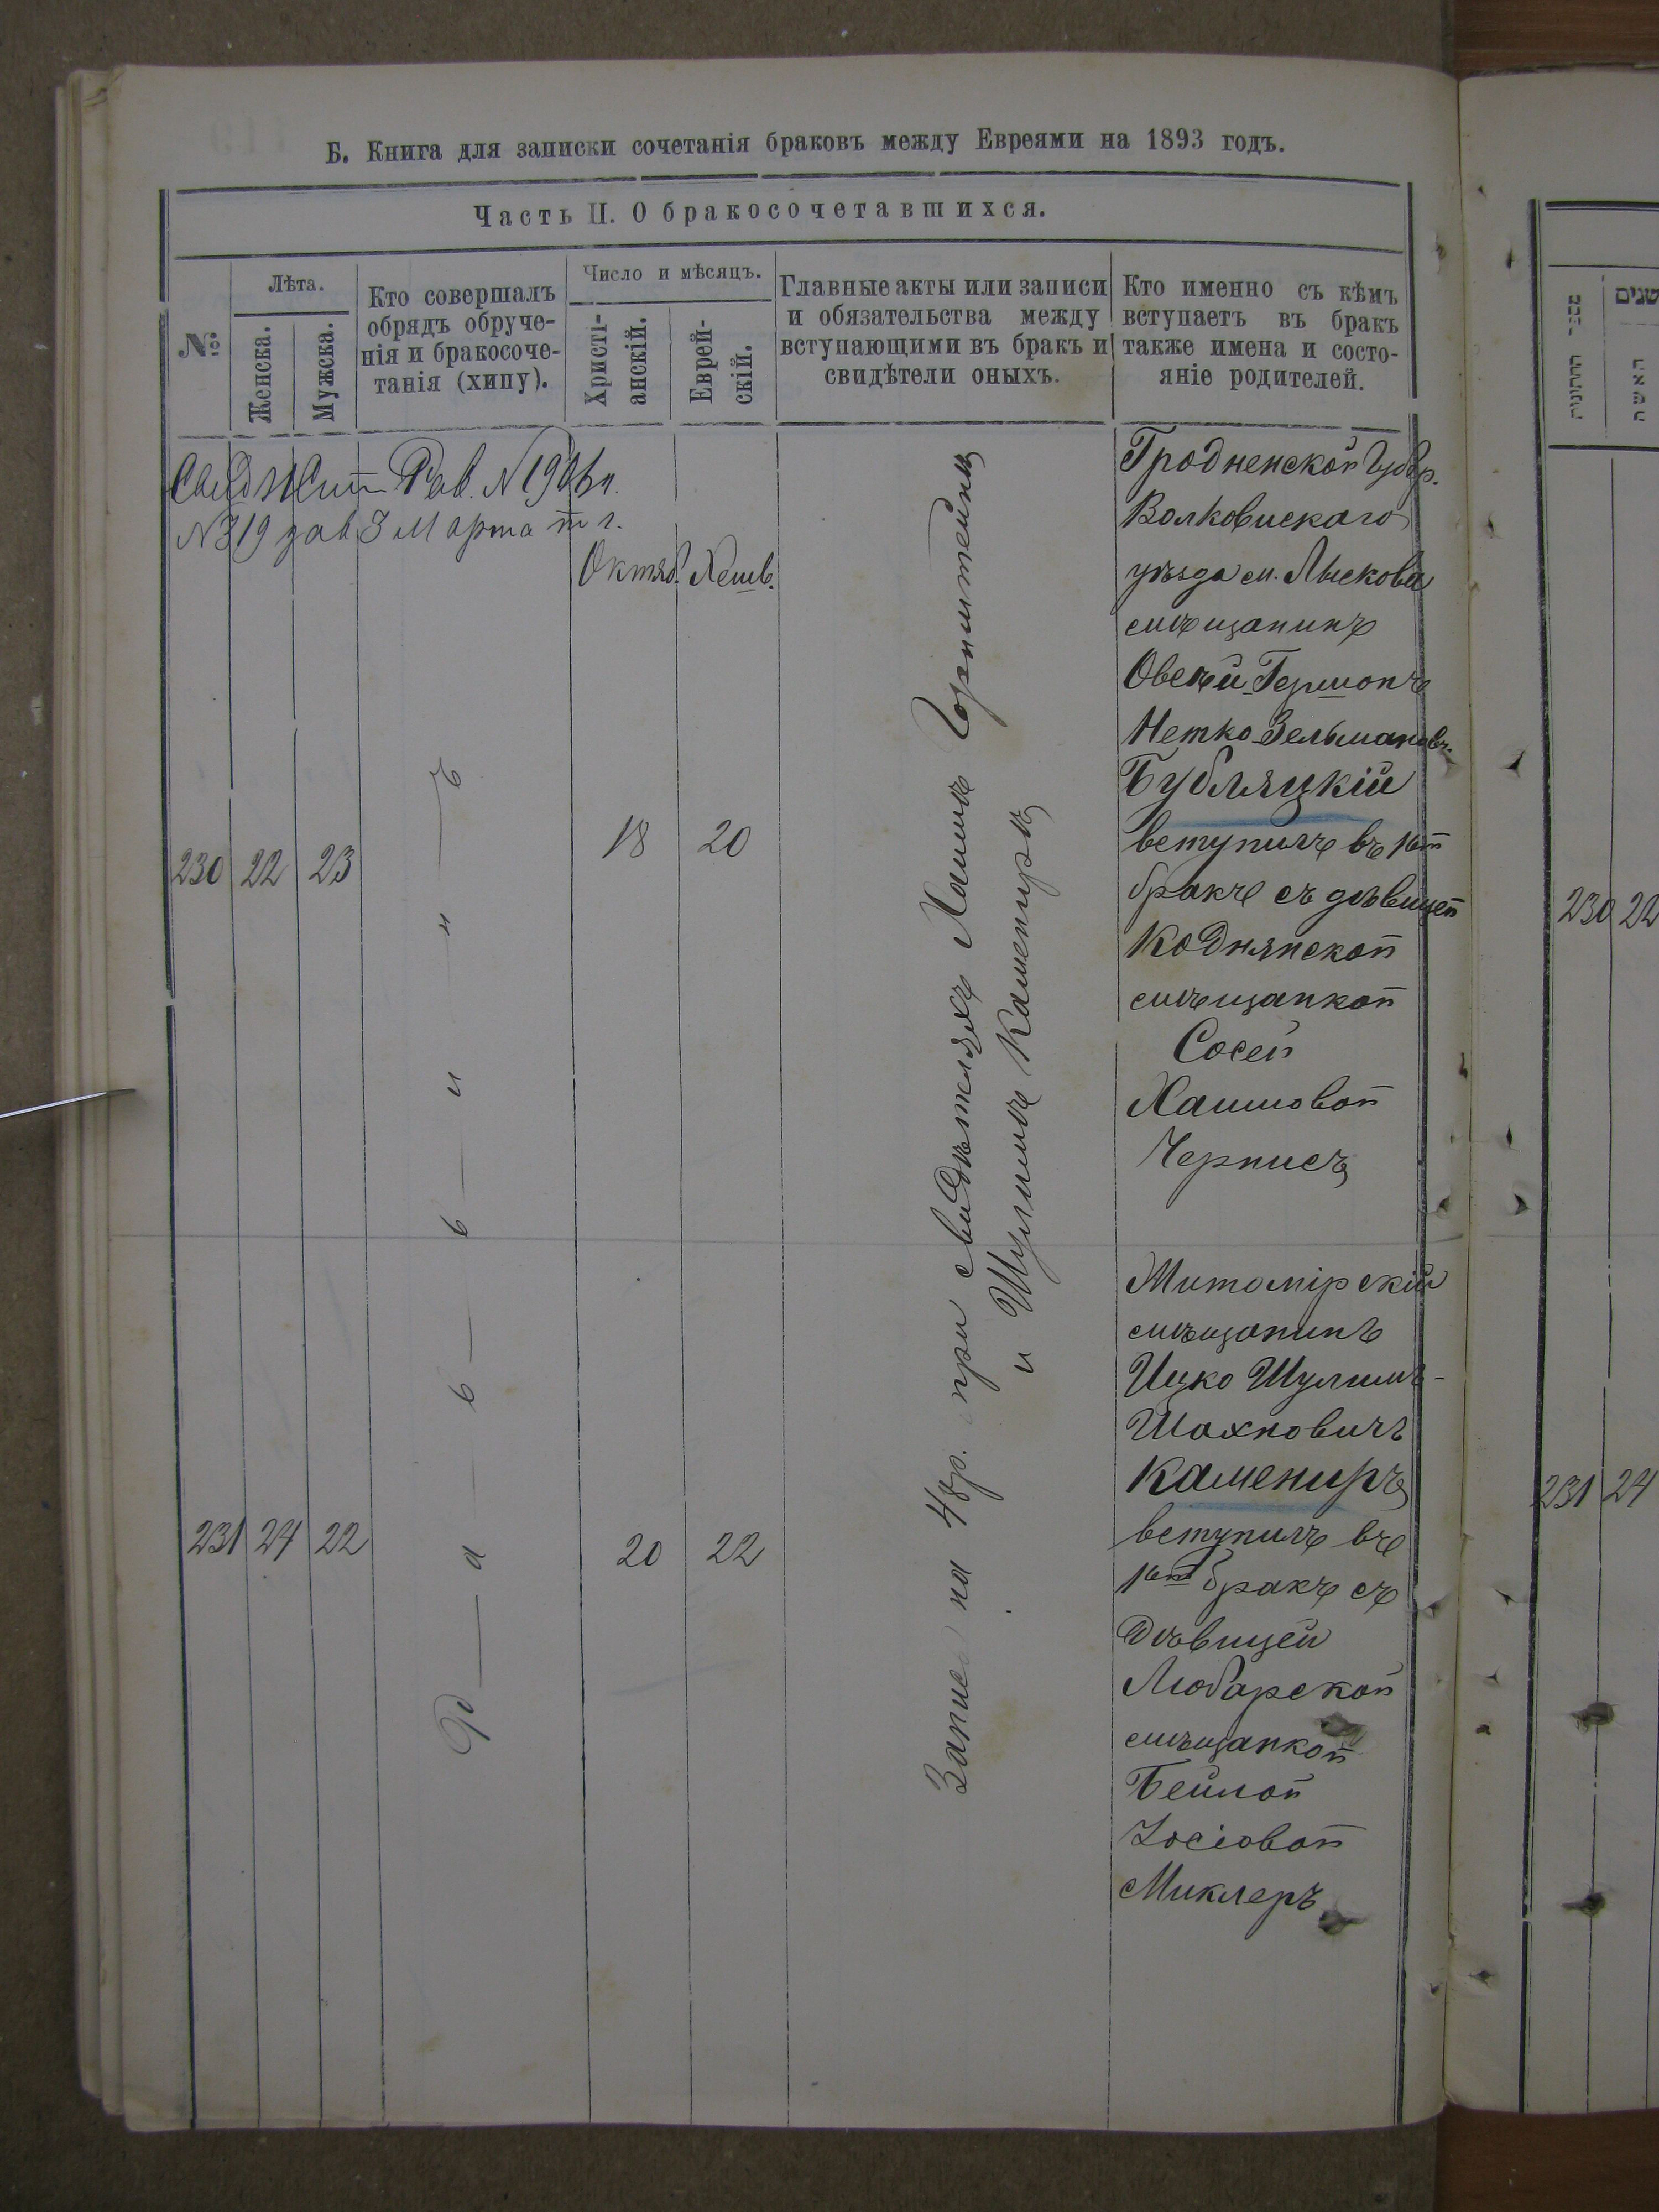 Б. Книга для записки сочетанія браковъ между Евреями на 1893 годъ.
Часть II. О бракосочетавшихся.
№
Лѣта.
Женска.
Мужска.
Кто совершалъ
обрядъ обруче-
нія и бракосоче-
танія (хипу).
Число и мѣсяцъ.
Христі-
анскій.
Еврей-
скій.
Главные акты или записи
и обязательства между
вступающими въ бракъ и
свидѣтели оныхъ.
Кто именно съ кѣмъ
вступаетъ въ бракъ
также имена и состо-
яніе родителей.
Рав.
№ 319 3 Марта т г.
Октяб. Хешв.
230 22 23
18 20
Р а в в и н ъ
Запись на 48р. при свидѣтеляхъ Хаимъ Горнштейнъ
и Шулимъ Камениръ
Гродненской Губер.
Волковискаго
уѣзда м. Лыскова
мѣщанинъ
Овсѣй-Гершонъ
Нетко Зельманов.
Бубляцкій
вступилъ въ 1ый
бракъ съ дѣвицей
Коднянской
мѣщанкой
Сосей
Хаимовой
Чернисъ
231 24 22
20 22
Житомірскій
мѣщанинъ
Ицко Шулимъ-
Шахновичъ
Камениръ
вступилъ въ
1ый бракъ съ
дѣвицей
Любарской
мѣщанкой
Бейлой
Іосіовой
Миклеръ
שנים
האשה
230 22
231 24